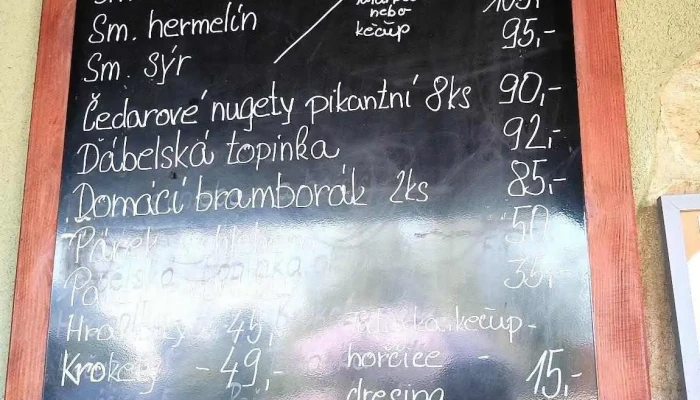 Sm. hermelín
nebo
kečup
Sm. sýr
95,-
Čedarové nugety pikantní 8ks 90,-
Ďábelská topinka 92,-
Domácí bramborák 2ks 85,-
Párek 50
35,-
45,- kečup -
Krokety - 49,- hořčice - 15,-
dresing